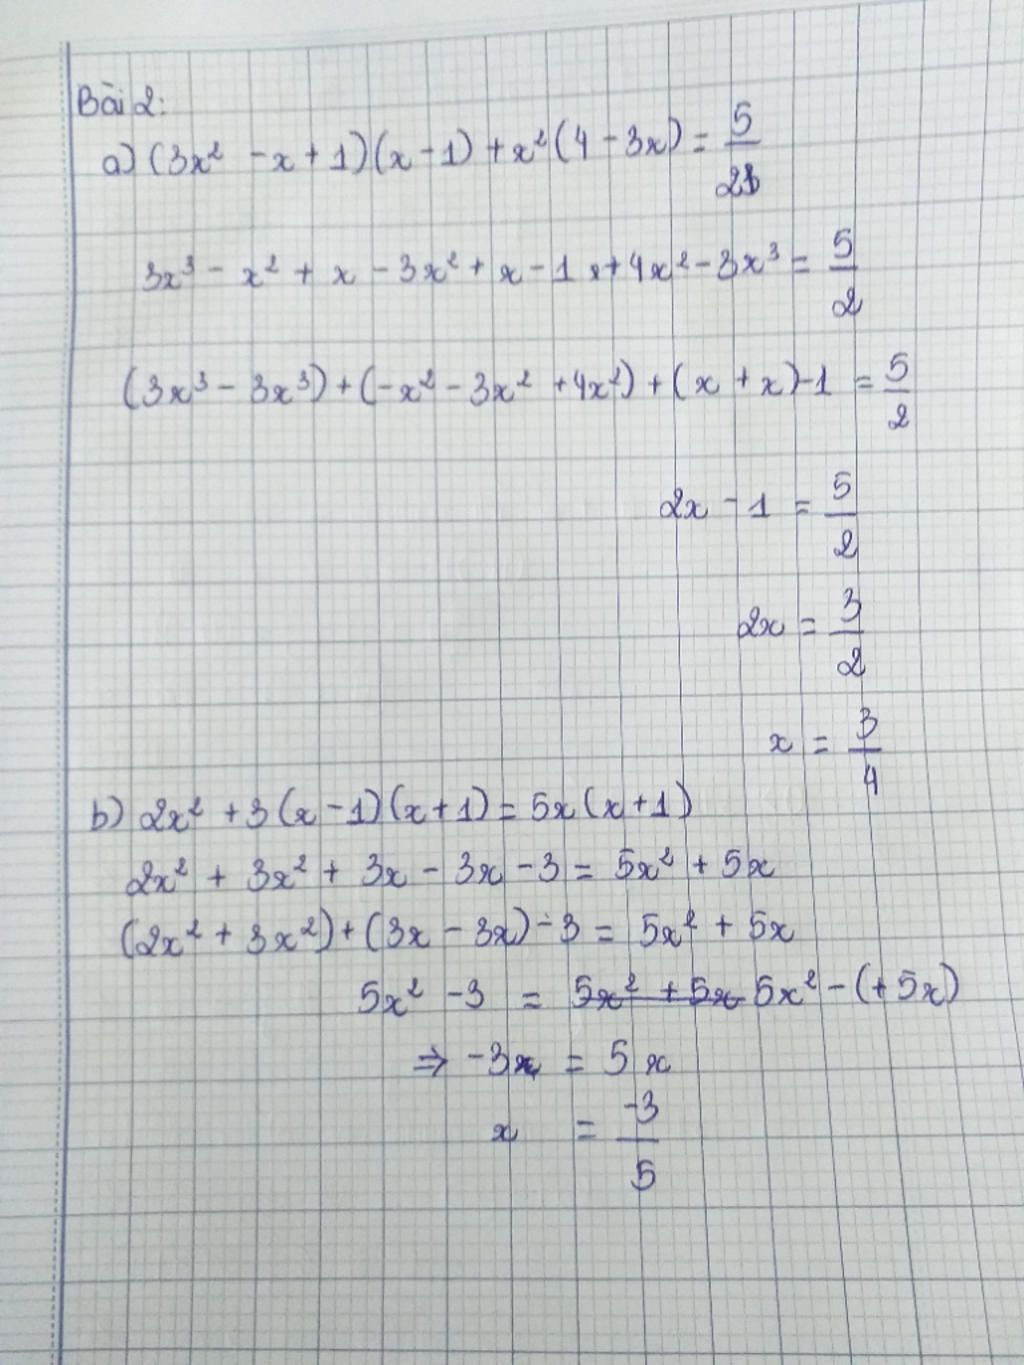 Bài 2:
a) (3x² - x + 1)(x - 1) + x²(4 - 3x) = 5/2
3x³ - x² + x - 3x² + x - 1 + 4x² - 3x³ = 5/2
(3x³ - 3x³) + (-x² - 3x² + 4x²) + (x + x) - 1 = 5/2
2x - 1 = 5/2
2x = 3/2
x = 3/4
b) 2x² + 3(x - 1)(x + 1) = 5x(x + 1)
2x² + 3x² + 3x - 3x - 3 = 5x² + 5x
(2x² + 3x²) + (3x - 3x) - 3 = 5x² + 5x
5x² - 3 = 5x² + 5x 5x² - (+ 5x)
⇒ -3x = 5x
x = -3/5